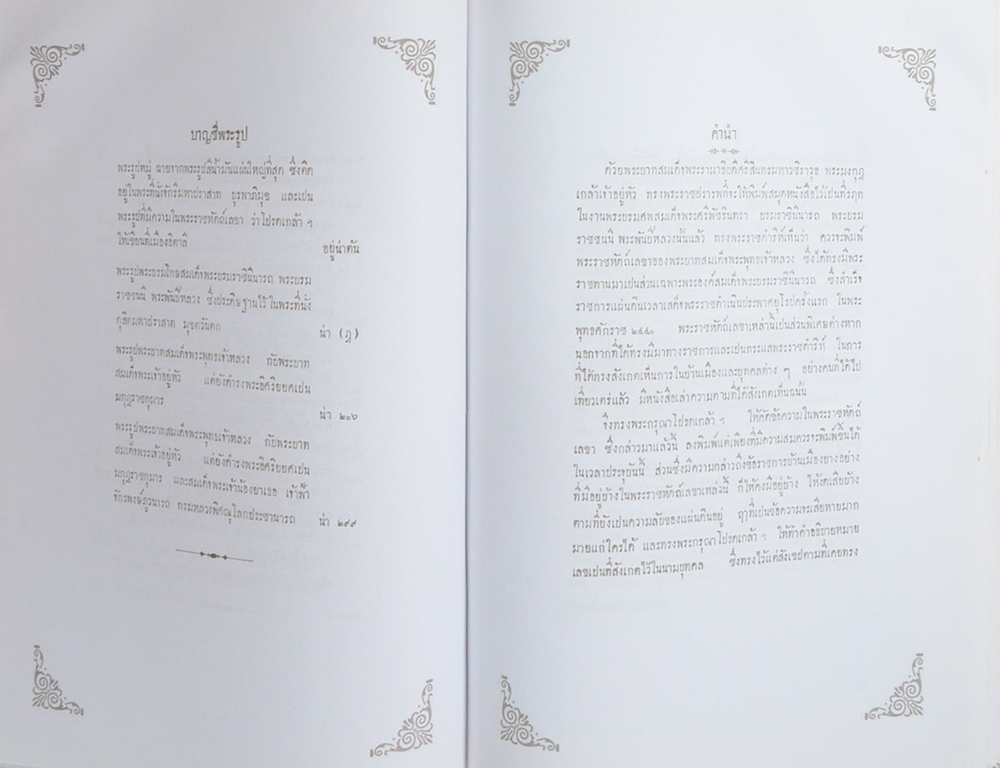 บาญชีพระรูป
พระรูปหมู่ ฉายจากพระรูปสีน้ำมันแผ่นใหญ่ที่สุด ซึ่งติด
อยู่ในพระที่นั่งจักรีมหาปราสาท บูรพาภิมุข และเป็น
พระรูปที่มีความในพระราชหัตถ์เลขา ว่าโปรดเกล้า ฯ
ให้เขียนที่เมืองอิตาลี อยู่น่าต้น
พระรูปพระบรมโกษสมเด็จพระบรมราชินีนารถ พระบรม
ราชชนนี พระพันปีหลวง ซึ่งประดิษฐานไว้ในพระที่นั่ง
ดุสิตมหาปราสาท มุขตวันตก น่า (ฎ)
พระรูปพระบาทสมเด็จพระพุทธเจ้าหลวง กับพระบาท
สมเด็จพระเจ้าอยู่หัว แต่ยังดำรงพระอิศริยยศเปน
มกุฎราชกุมาร น่า ๒๐๖
พระรูปพระบาทสมเด็จพระพุทธเจ้าหลวง กับพระบาท
สมเด็จพระเจ้าอยู่หัว แต่ยังดำรงพระอิศริยยศเปน
มกุฎราชกุมาร และสมเด็จพระเจ้าน้องยาเธอ เจ้าฟ้า
จักรพงษ์ภูวนารถ กรมหลวงพิศณุโลกประชานารถ น่า ๒๙๙
คำนำ
ด้วยพระบาทสมเด็จพระรามาธิบดีศรีสินทรมหาวชิราวุธ พระมงกุฎ
เกล้าเจ้าอยู่หัว ทรงพระราชปรารพที่จะให้พิมพ์สมุดหนังสือไว้เปนที่รฦก
ในงานพระบรมศพสมเด็จพระศรีพัชรินทรา บรมราชินีนารถ พระบรม
ราชชนนี พระพันปีหลวงนั้นแล้ว ทรงพระราชดำริห์เห็นว่า ควรจะพิมพ์
พระราชหัตถ์เลขาของพระบาทสมเด็จพระพุทธเจ้าหลวง ซึ่งได้ทรงมีพระ
ราชทานมาเปนส่วนเฉพาะพระองค์สมเด็จพระบรมราชินีนารถ ซึ่งสำเร็จ
ราชการแผ่นดินเวลาเสด็จพระราชดำเนินประพาศยุโรปครั้งแรก ในพระ
พุทธศักราช ๒๔๔๐ พระราชหัตถ์เลขาเหล่านี้เปนส่วนพิเศษต่างหาก
นอกจากที่ได้ทรงมีมาทางราชการและเปนกระแสพระราชดำริห์ ในการ
ที่ได้ทรงสังเกตเห็นการในบ้านเมืองและบุคคลต่าง ๆ อย่างคนที่ได้ไป
เที่ยวเตร่แล้ว มีหนังสือเล่าความตามที่ได้สังเกตเห็นฉนั้น
จึงทรงพระกรุณาโปรดเกล้า ฯ ให้คัดข้อความในพระราชหัตถ์
เลขา ซึ่งกล่าวมาแล้วนี้ ลงพิมพ์แต่เพียงที่มีความสมควรจะพิมพ์ขึ้นได้
ในเวลาประจุบันนี้ ส่วนซึ่งมีความกล่าวถึงข้อราชการบ้านเมืองบางอย่าง
ที่มีอยู่บ้างในพระราชหัตถ์เลขาเหล่านี้ ก็ให้คงมีอยู่บ้าง ให้งดเสียบ้าง
ตามที่ยังเปนความลับของแผ่นดินอยู่ ฤๅที่เปนข้อความจะเสียหายมาก
มายแก่ใครได้ และทรงพระกรุณาโปรดเกล้า ฯ ให้ทำคำอธิบายหมาย
เลขเปนที่สังเกตไว้ในนามบุคคล ซึ่งทรงไว้แต่สังเขปตามที่เคยทรง